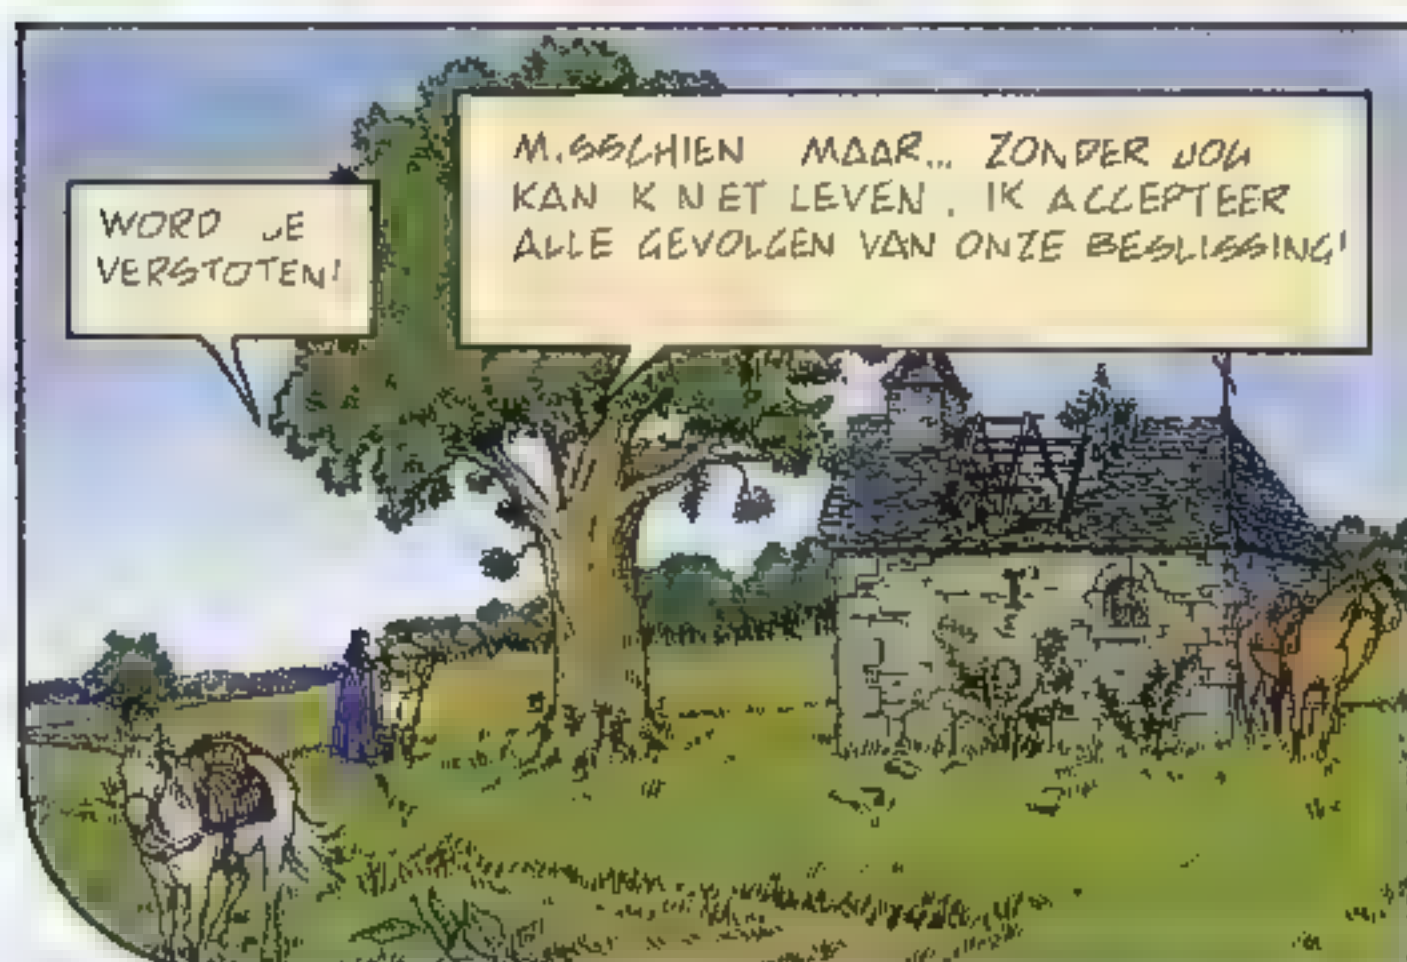 WORD JE
VERSTOTEN!
MISSCHIEN MAAR... ZONDER JOU
KAN IK NIET LEVEN. IK ACCEPTEER
ALLE GEVOLGEN VAN ONZE BESLISSING!